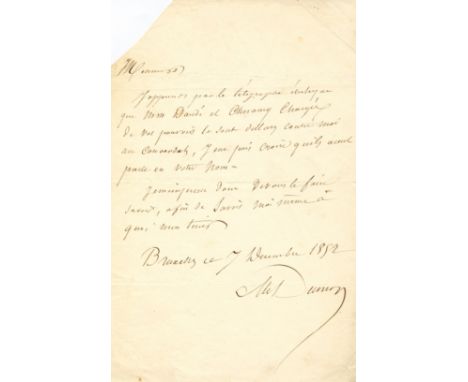 Monsieur
J'apprends par le télégraphe électrique
que MMrs Dardé et Cheramy Chargés
de vos pouvoirs se sont déclarés contre moi
au Concordat, Je ne puis croire qu'ils aient
parlé en votre Nom-
Je m'empresse donc de vous le faire
savoir, afin de savoir moi même à
quoi m'en tenir
Bruxelles ce 7 Decembre 1852
Alex Dumas